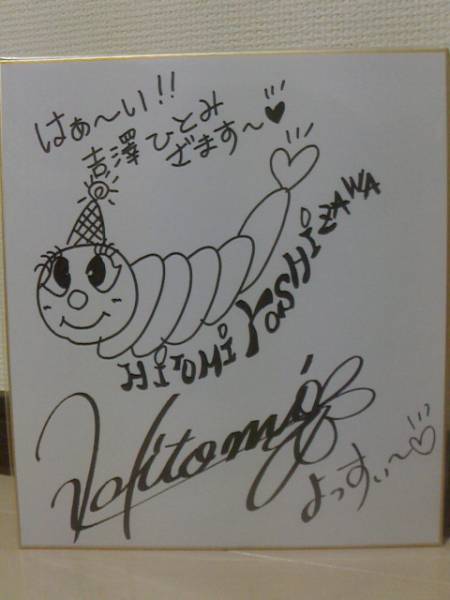 はぁ～い!!
吉澤ひとみ
ざます～♥
HITOMI YOSHIZAWA
Hitomi
よっすぃ～♡